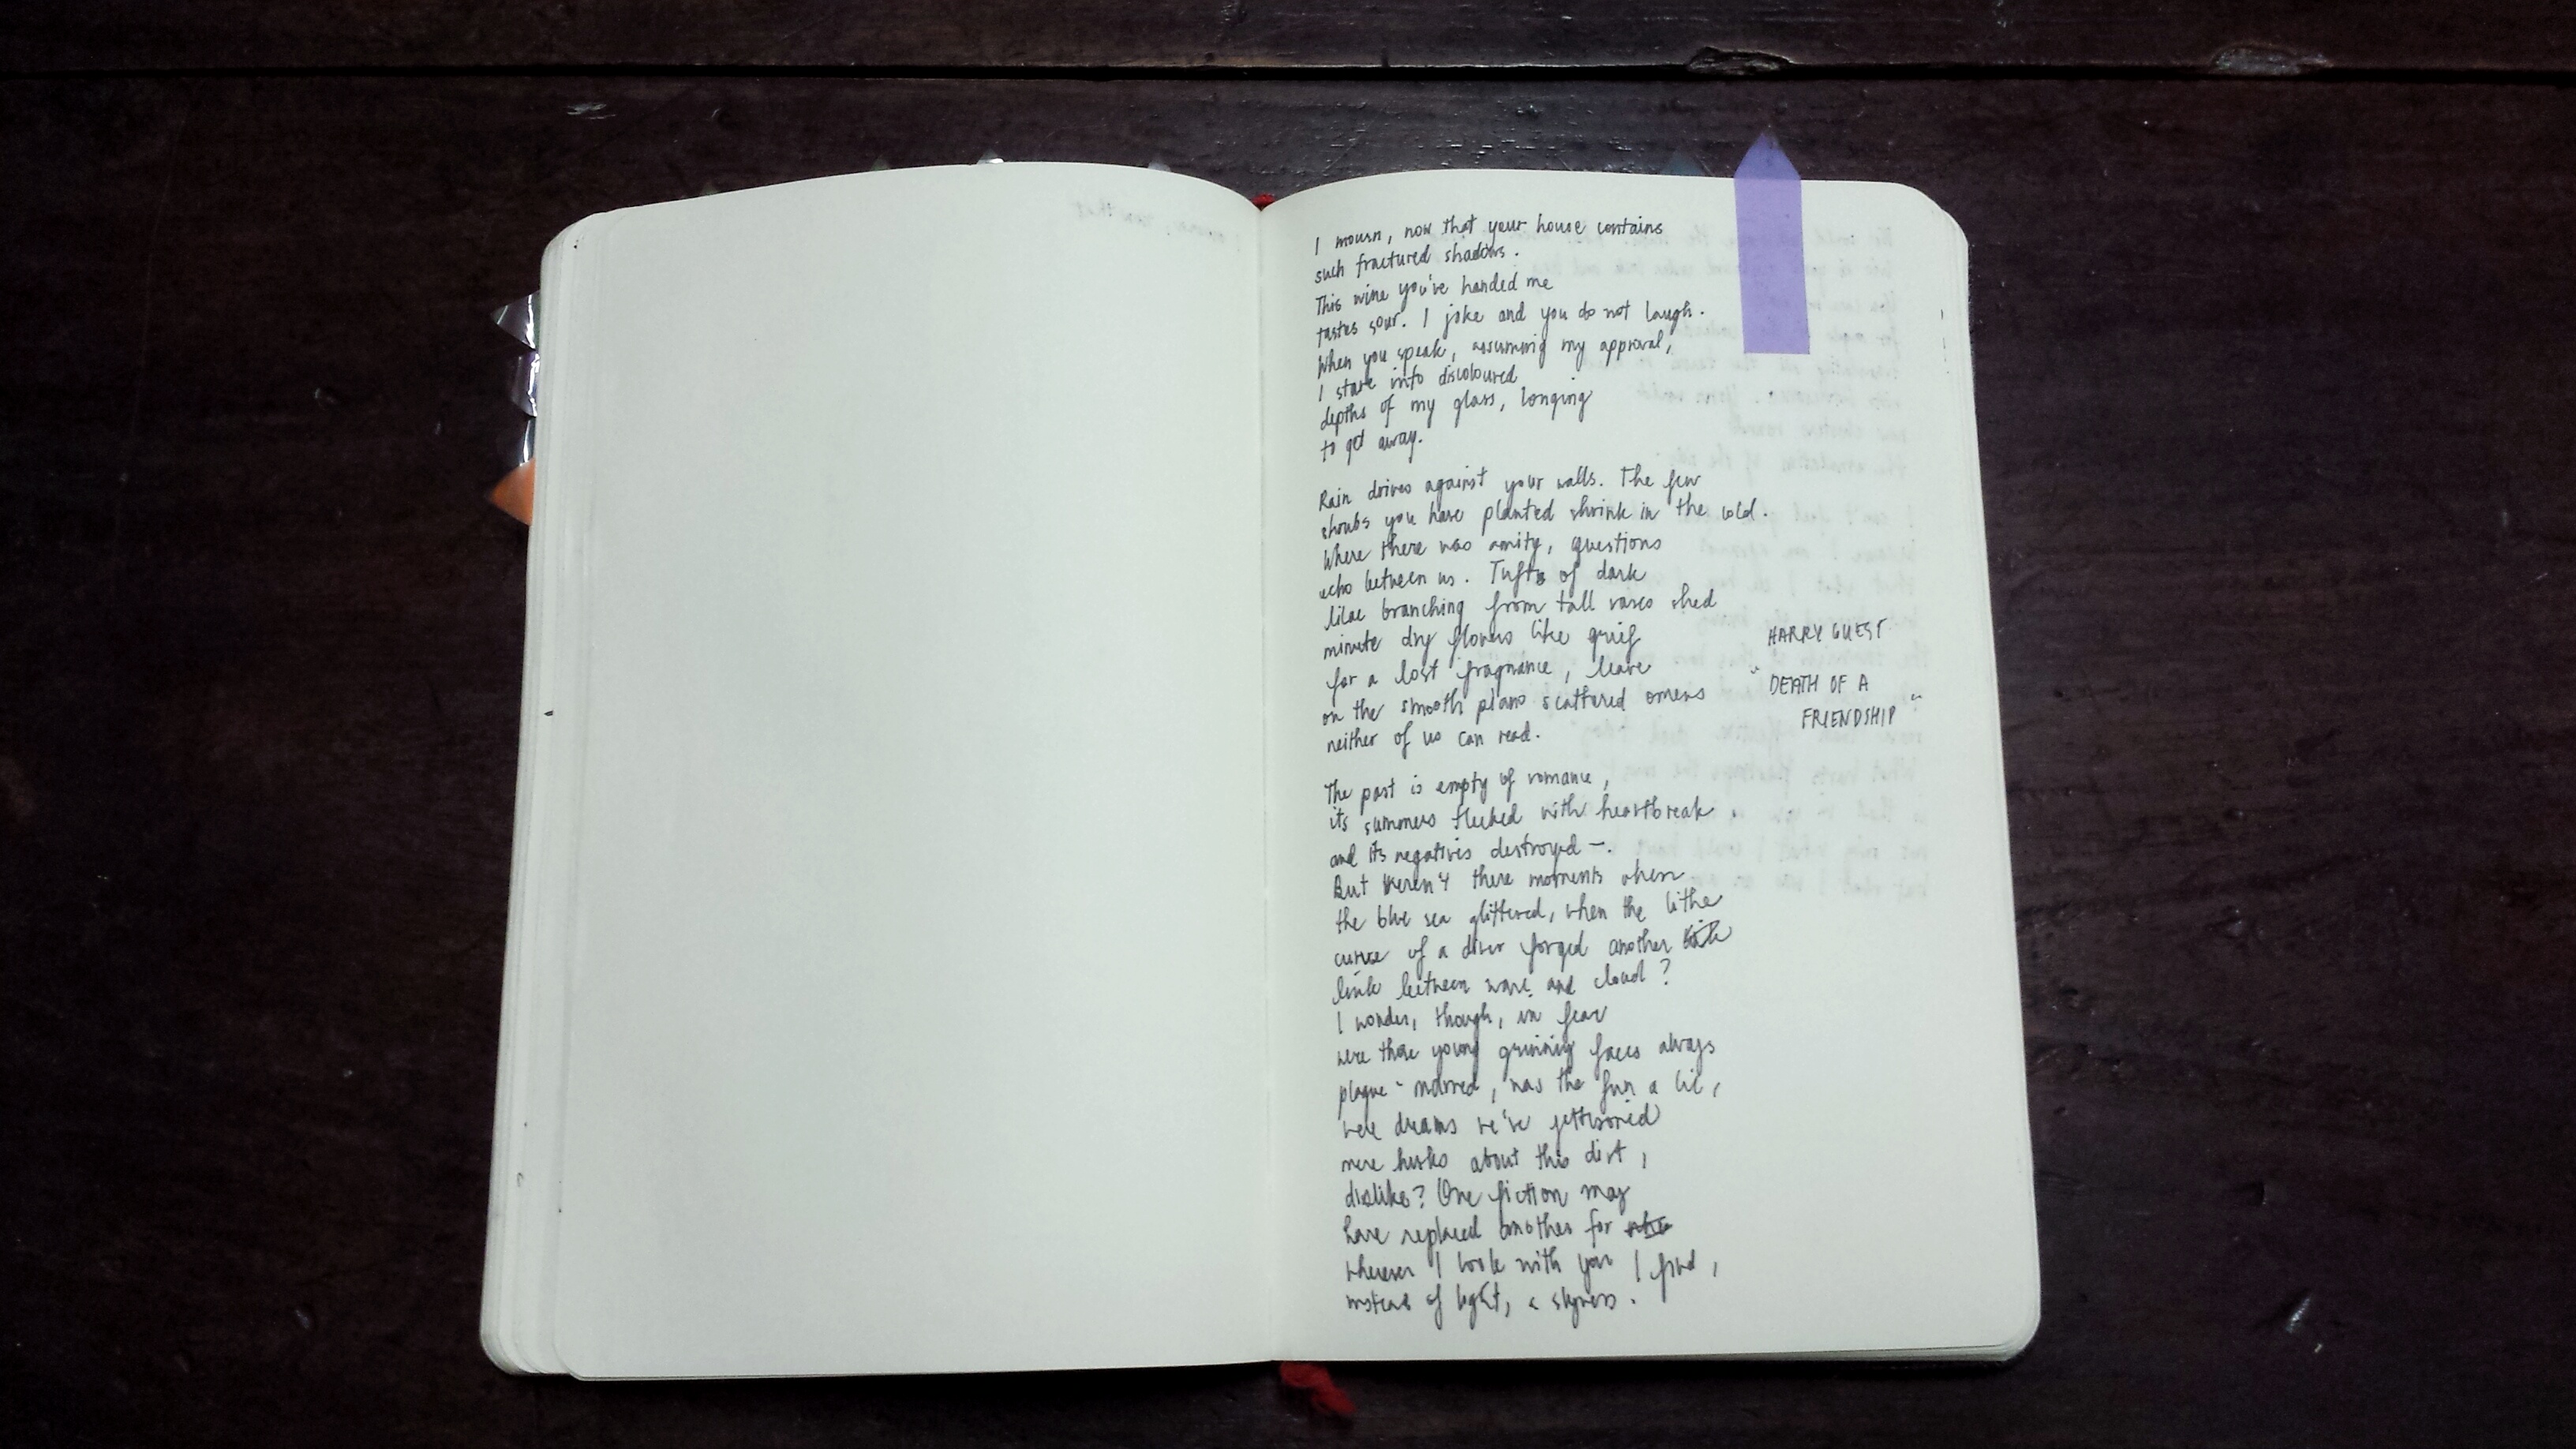 I mourn, now that your house contains
such fractured shadows.
This wine you've handed me
tastes sour. I joke and you do not laugh.
When you speak, assuming my approval,
I stare into discoloured
depths of my glass, longing
to get away.
Rain drives against your walls. The few
shrubs you have planted shrink in the cold.
Where there was amity, questions
echo between us. Tufts of dark
lilac branching from tall vases shed
minute dry flowers like grief
for a lost fragrance, leave
on the smooth piano scattered omens
neither of us can read.
HARRY GUEST
" DEATH OF A
FRIENDSHIP "
The past is empty of romance,
its summers flecked with heartbreak
and its negatives destroyed —.
But weren't there moments when
the blue sea glittered, when the lithe
curve of a diver forged another
link between wave and cloud?
I wonder, though, in fear
were those young grinning faces always
plague-marred, was the fun a lie,
were dreams we've jettisoned
mere husks about this dirt,
dislike? One fiction may
have replaced another for
wherever I look with you I find,
instead of light, a shyness.